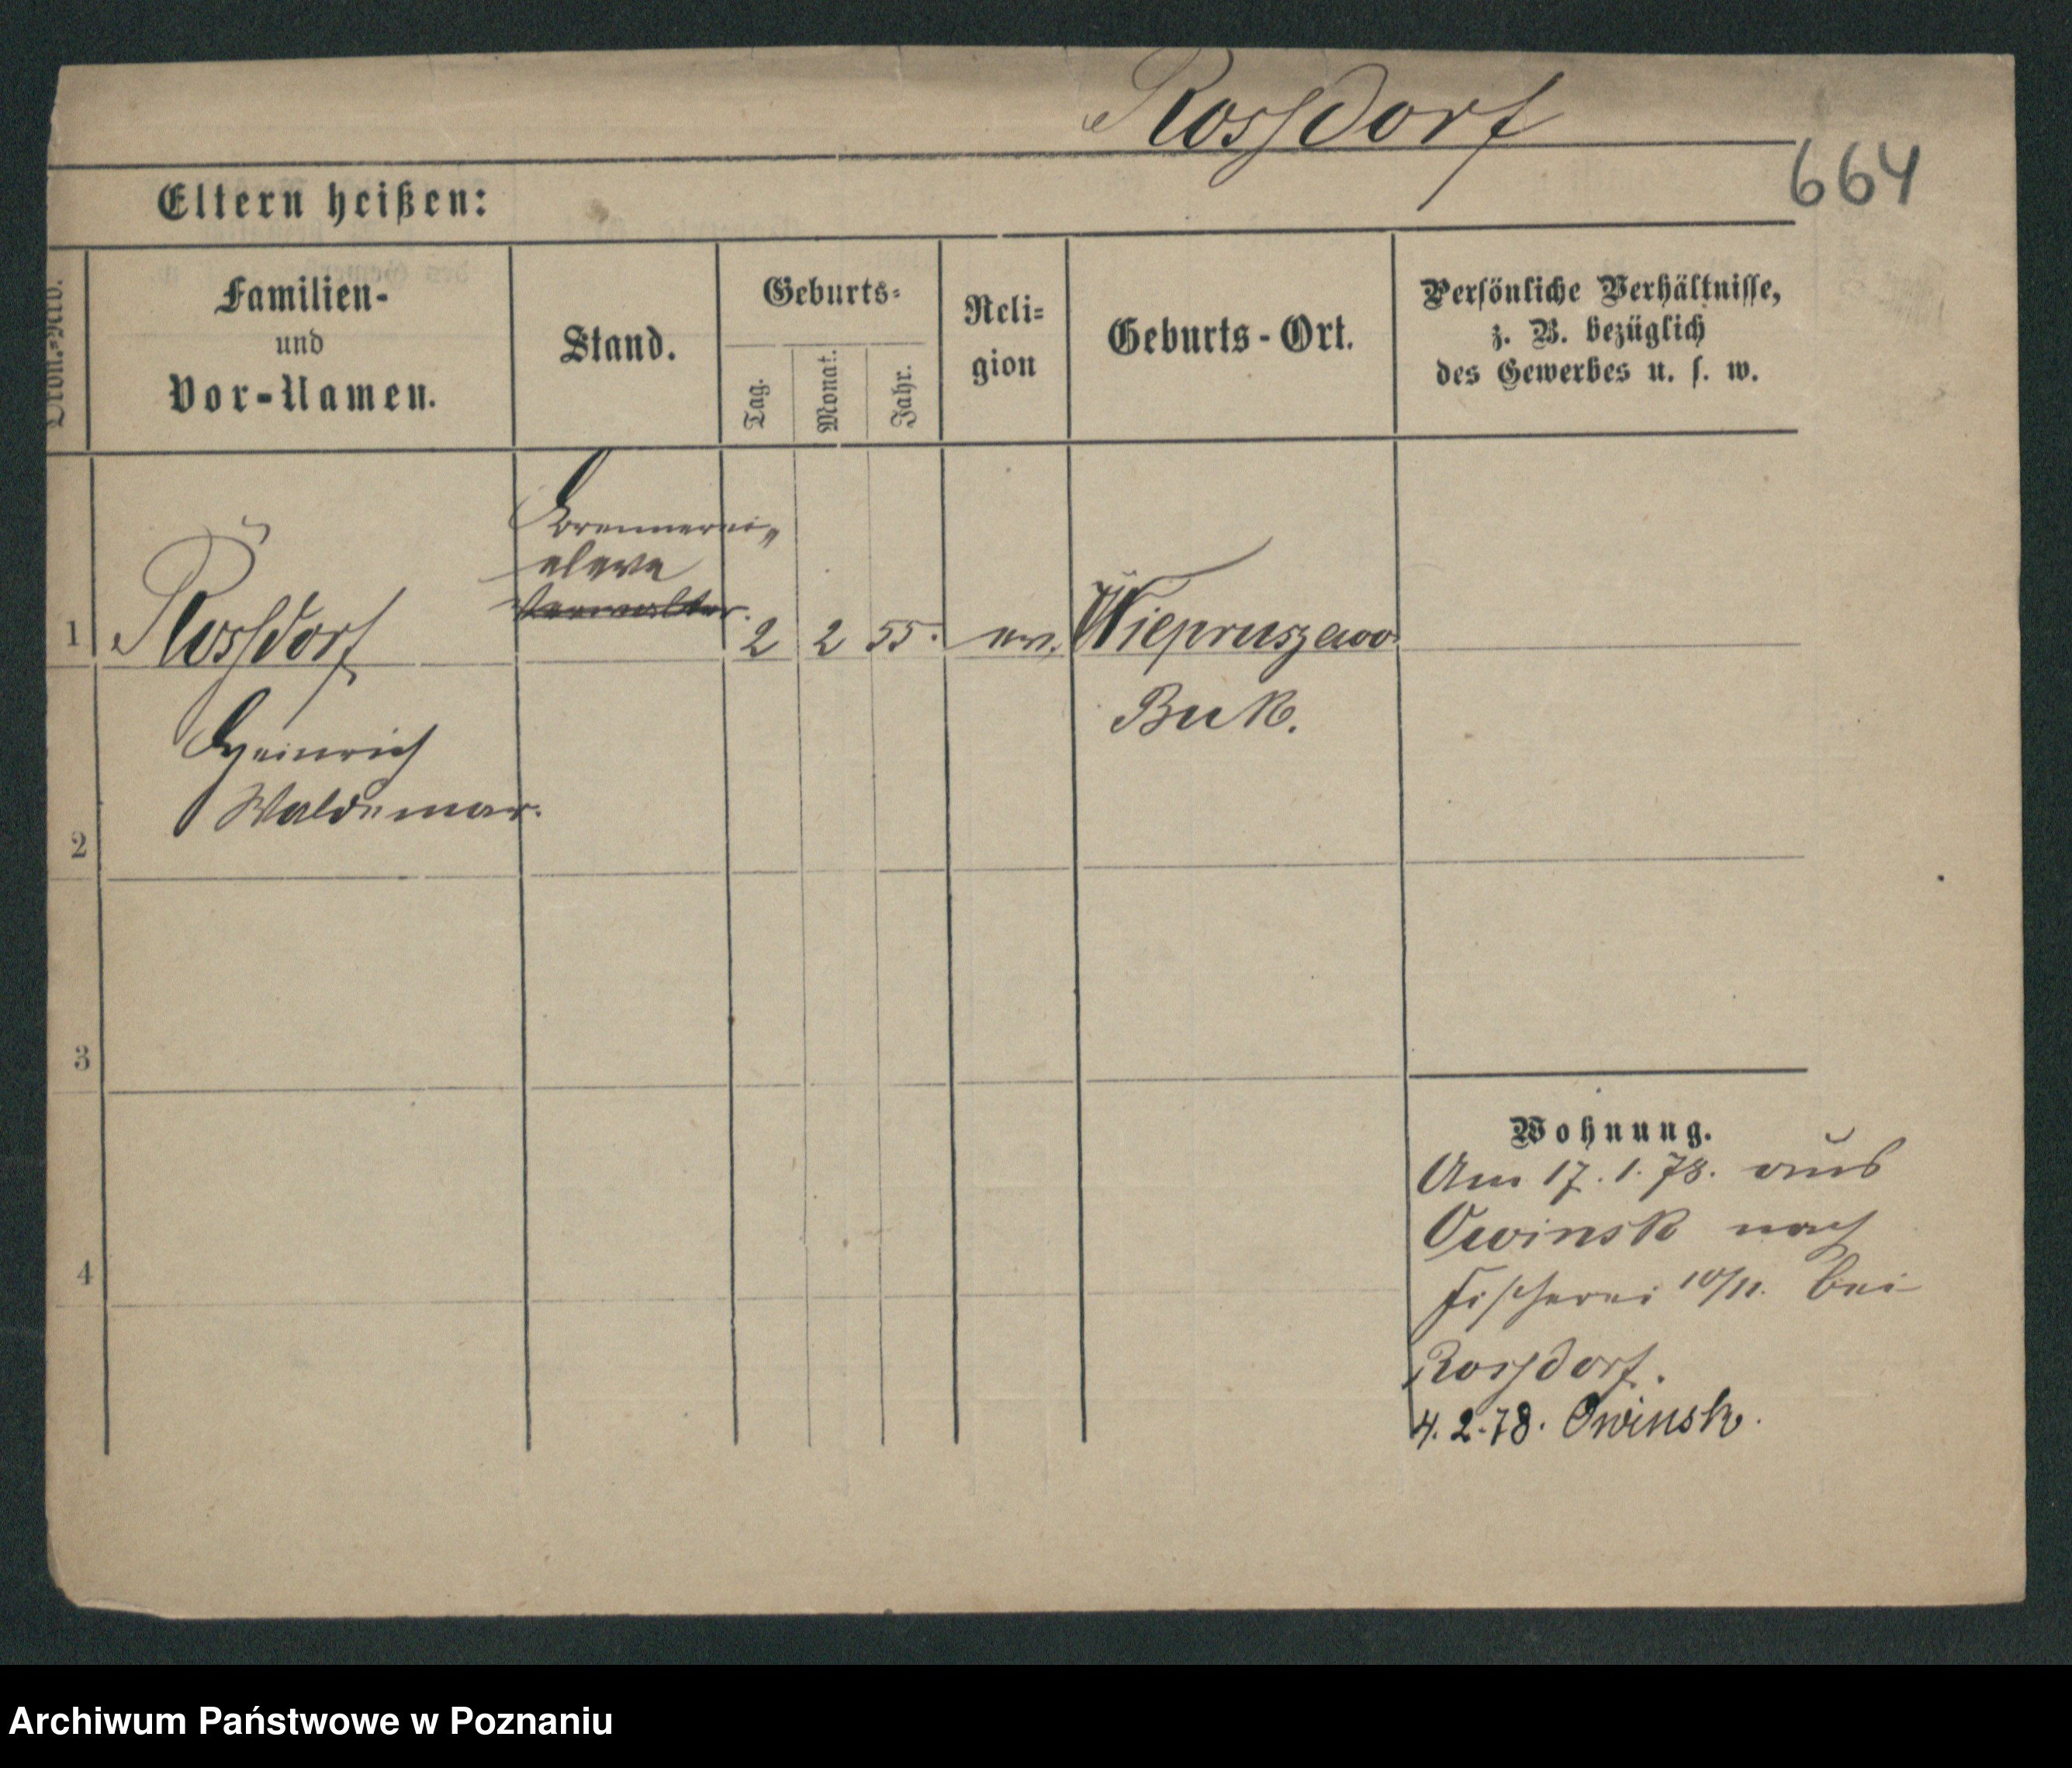 Rossdorf
664
Eltern heißen:
Familien-
und
Vor-Namen.
Stand.
Geburts-
Tag.
Monat.
Jahr.
Reli-
gion
Geburts-Ort.
Persönliche Verhältnisse,
z. B. bezüglich
des Gewerbes u. s. w.
1
Rossdorf
Heinrich
Waldemar.
Brennerei-
eleve
Verwalter.
2
2
55.
ev.
Wiepruszewo
Buk.
2
3
4
Wohnung.
Am 17.1.78. aus
Owinsk nach
Fischerei 10/11. bei
Rossdorf.
4.2.78. Owinsk.
Archiwum Państwowe w Poznaniu